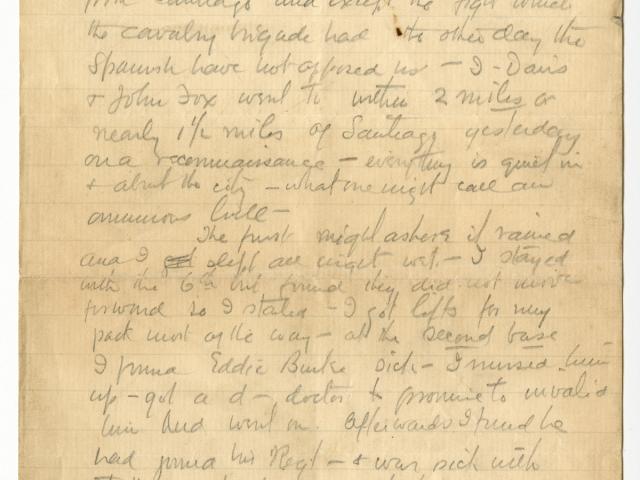 from Santiago and except the fight which
the cavalry brigade had the other day the
Spanish have not opposed us - I - Davis
& John Fox went to within 2 miles or
nearly 1½ miles of Santiago yesterday
on a reconnaissance - everything is quiet in
& about the city - what one might call an
ominous lull -
The first night ashore it rained
and I slept all night wet - I stayed
with the 6th but found they did not move
forward so I started - I got lifts for my
pack most of the way - at the second base
I found Eddie Burke sick - I nursed him
up - got a d - doctor to promise to invalid
him and went on. Afterwards I found he
had joined his Regt - & was sick with